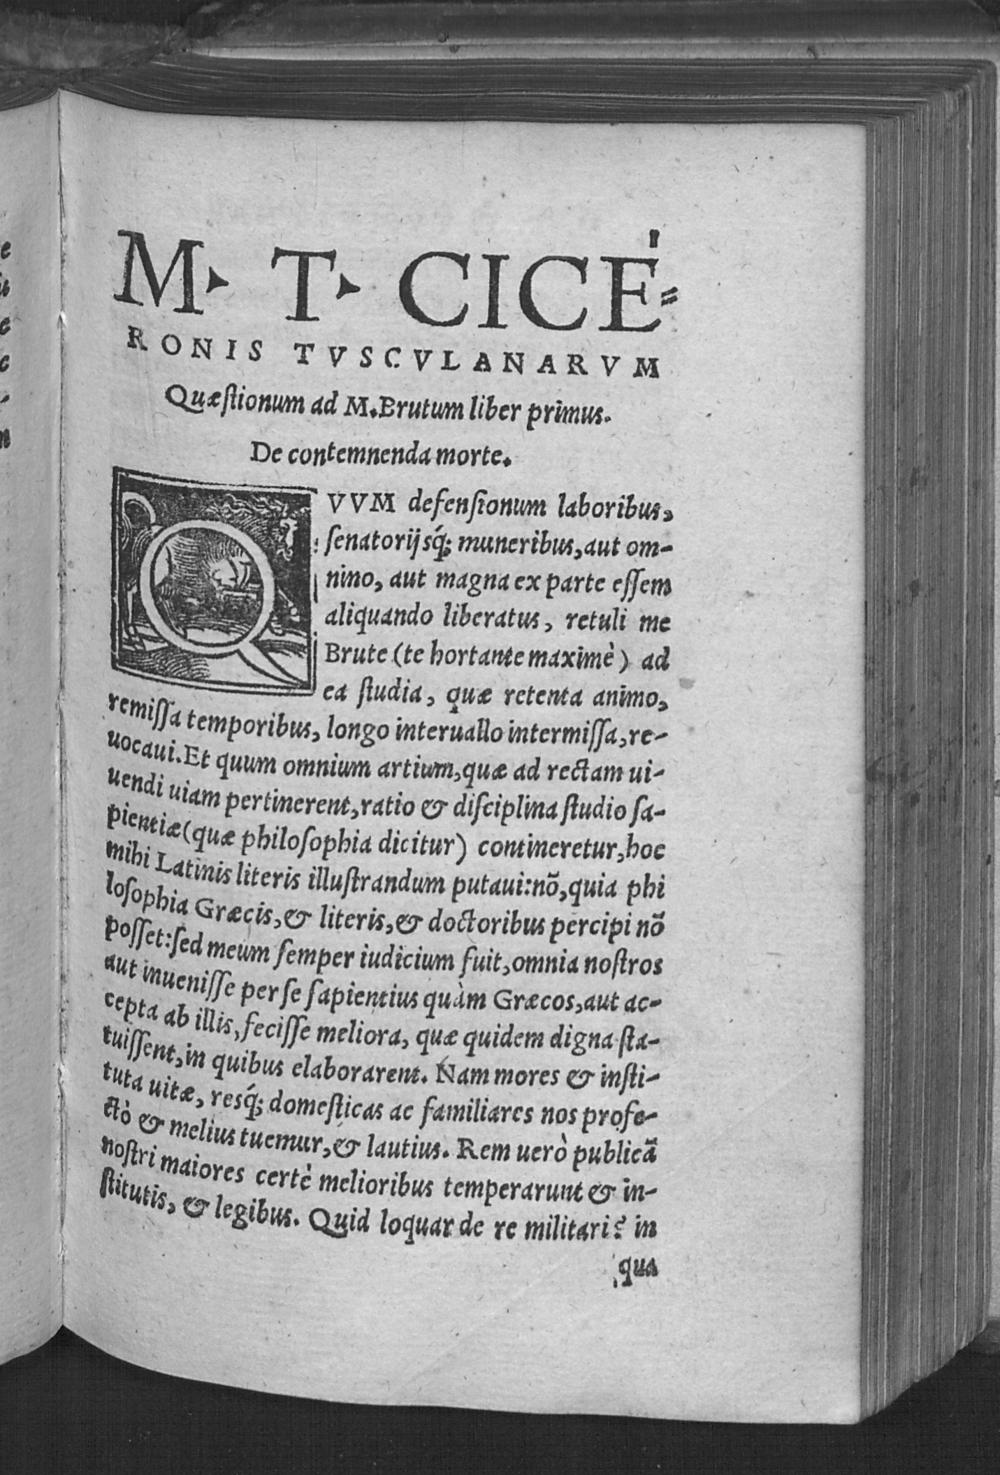 M. T. CICE=
RONIS TVSCVLANARVM
Quæstionum ad M. Brutum liber primus.
De contemnenda morte.
QVVM defensionum laboribus,
senatorijsq́; muneribus, aut om-
nino, aut magna ex parte essem
aliquando liberatus, retuli me
Brute (te hortante maximè) ad
ea studia, quæ retenta animo,
remissa temporibus, longo interuallo intermissa, re-
uocaui. Et quum omnium artium, quæ ad rectam ui-
uendi uiam pertinerent, ratio & disciplina studio sa-
pientiæ (quæ philosophia dicitur) contineretur, hoc
mihi Latinis literis illustrandum putaui: nõ, quia phi
losophia Græcis, & literis, & doctoribus percipi nõ
posset: sed meum semper iudicium fuit, omnia nostros
aut inuenisse per se sapientius quàm Græcos, aut ac-
cepta ab illis, fecisse meliora, quæ quidem digna sta-
tuissent, in quibus elaborarent. Nam mores & insti-
tuta uitæ, resq́; domesticas ac familiares nos profe-
ctò & melius tuemur, & lautius. Rem uerò publicã
nostri maiores certè melioribus temperarunt & in-
stitutis, & legibus. Quid loquar de re militari? in
qua